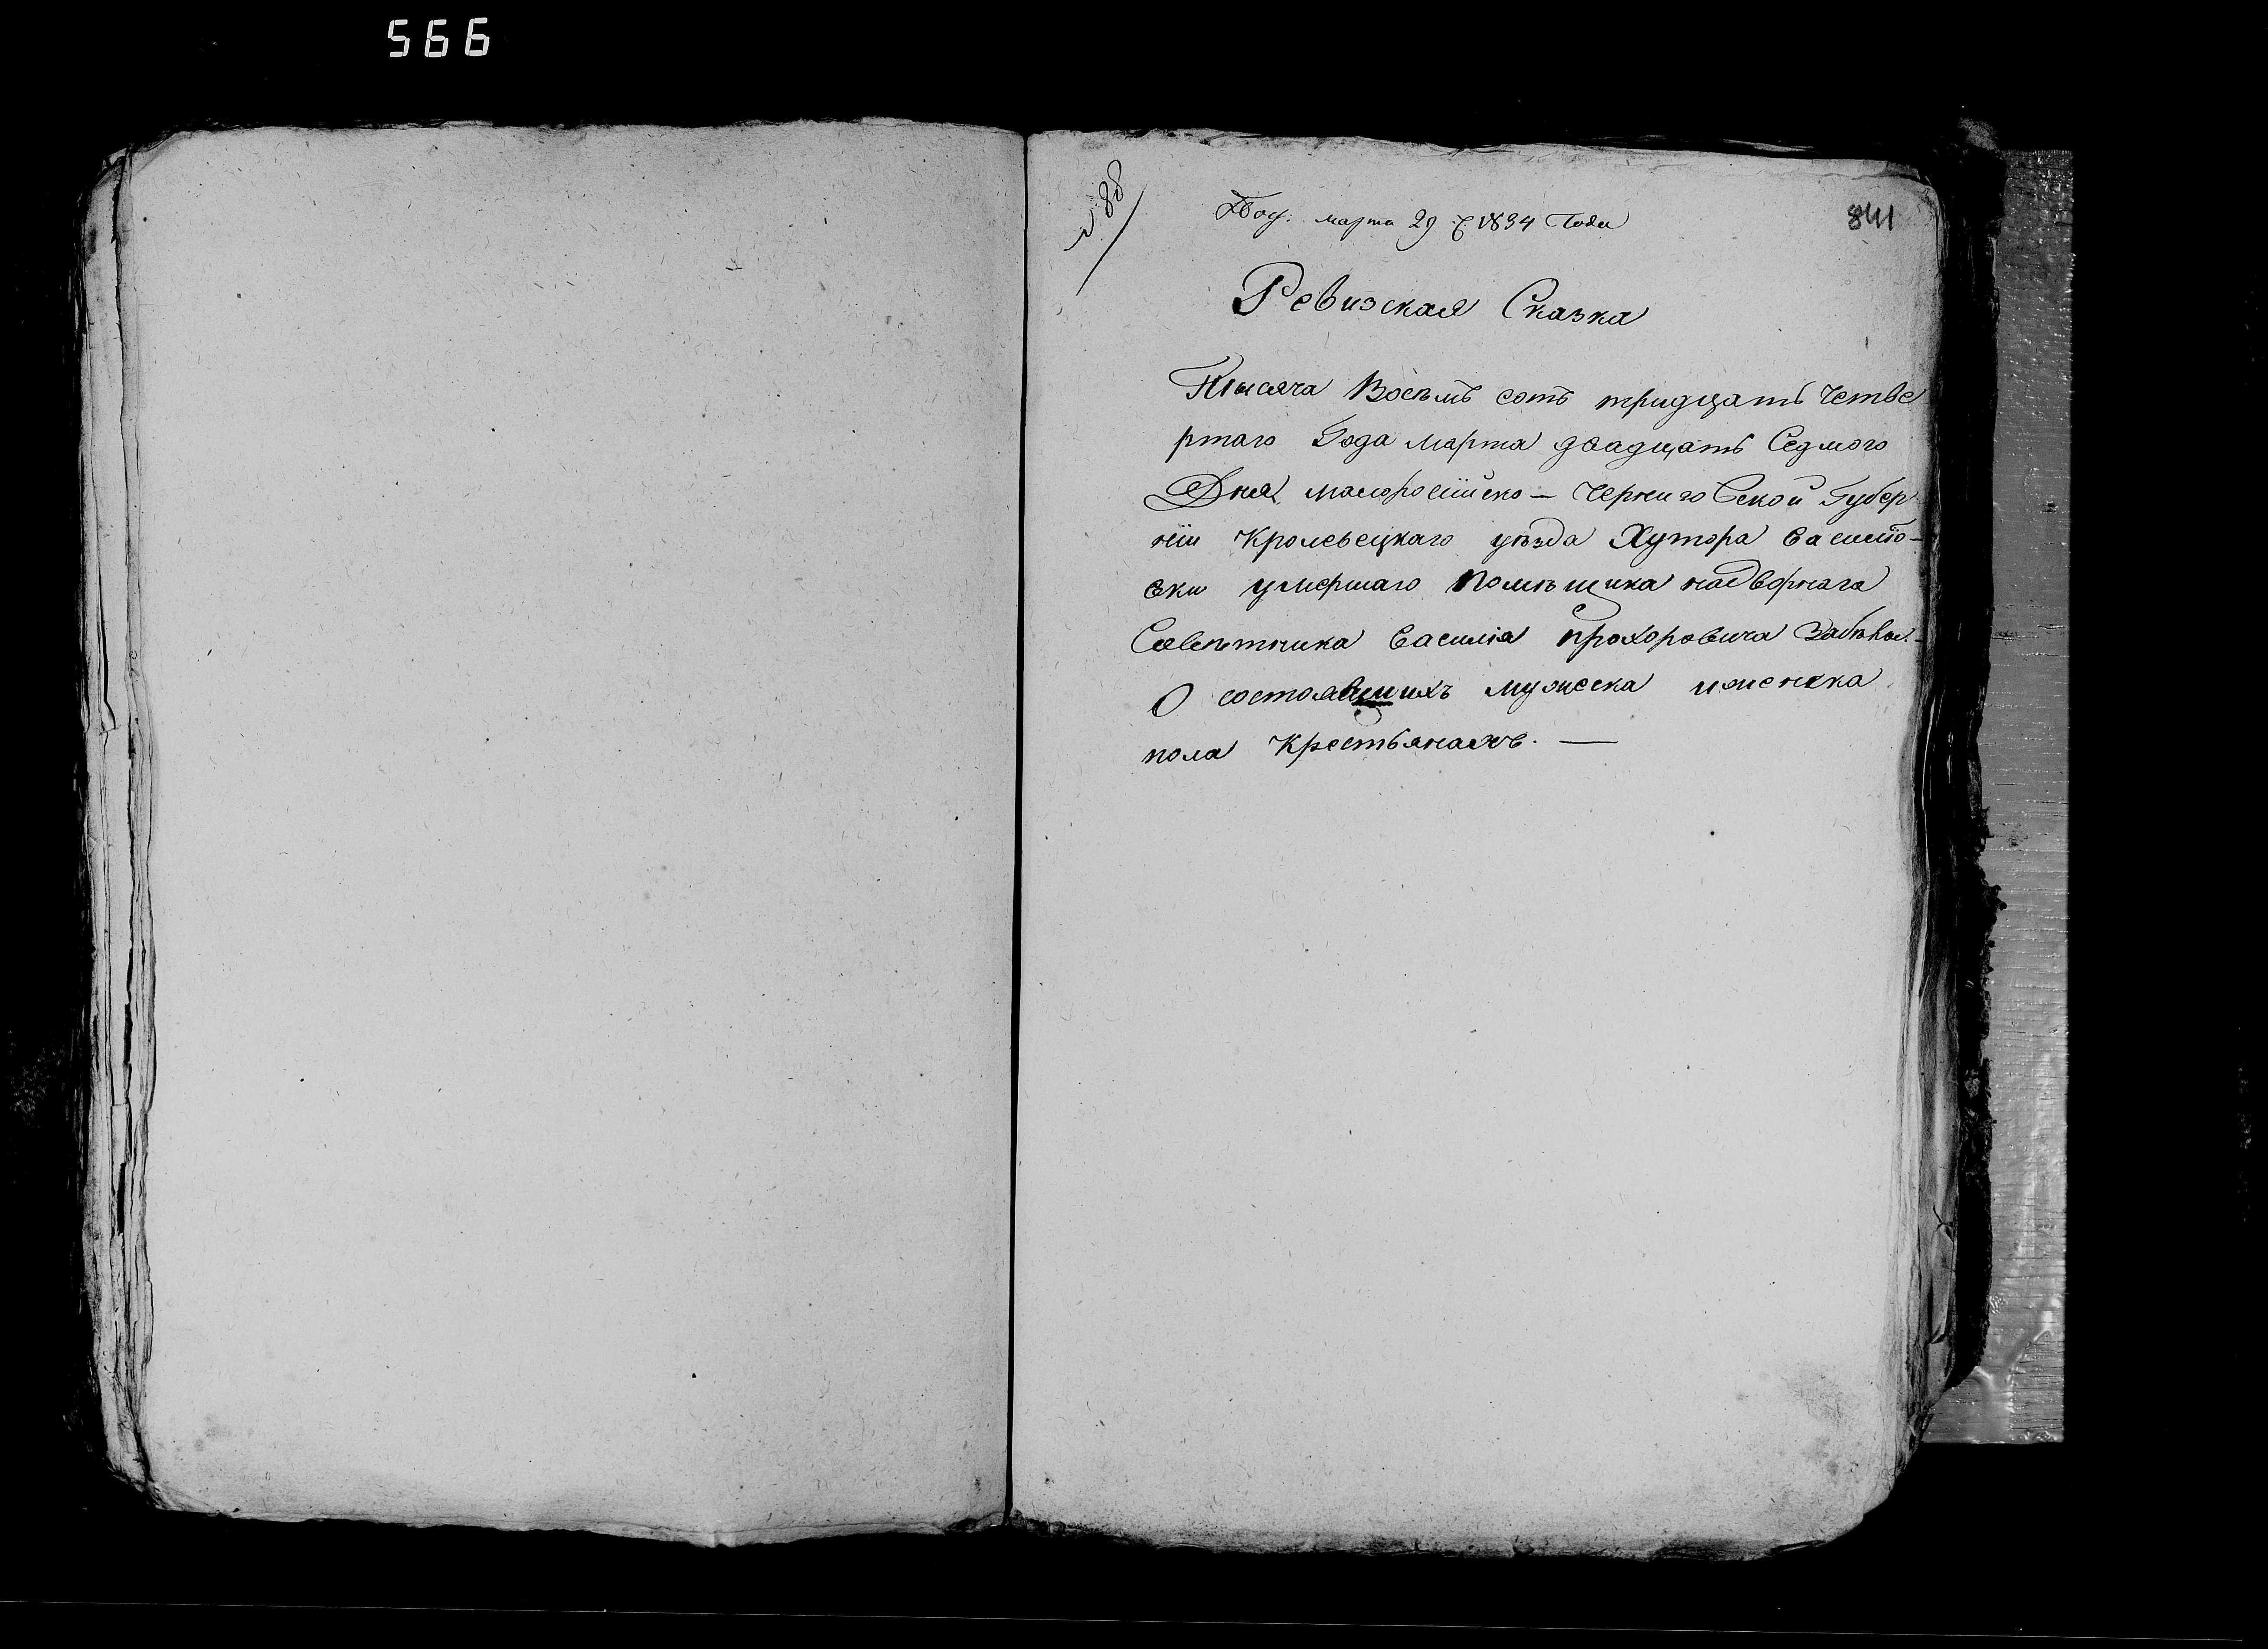 566
№ 88
841
Под: марта 29 д 1834 Года
Ревизская Сказка
Тысяча Восемъ сотъ тридцать Четве
ртаго Года марта двадцать Седмого
Дня малоросійско — Черниговской Губер
ніи Кролевецкаго уѣзда Хутора Василіо-
вки умершаго помѣщика надворнага
Совѣтника Василія прохоровича
О состоявшихъ мужеска иженска
пола Крестьянахъ. —